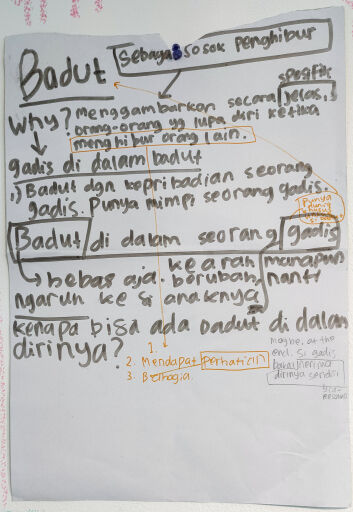 Badut
Sebagai sosok penghibur
spesifik
Why? Menggambarkan secara jelas,
orang-orang yg lupa diri ketika
menghibur orang lain.
gadis di dalam badut
1) Badut dgn kepribadian seorang
gadis. Punya mimpi seorang gadis.
Punya
Badut di dalam seorang gadis
bebas aja. kearah manapun
berubah, nanti
ngaruh ke si anaknya
kenapa bisa ada badut di dalam
dirinya?
1.
2. Mendapat perhatian
3. Berhagia.
Maybe, at the
end, si gadis
menerima
dirinya sendiri